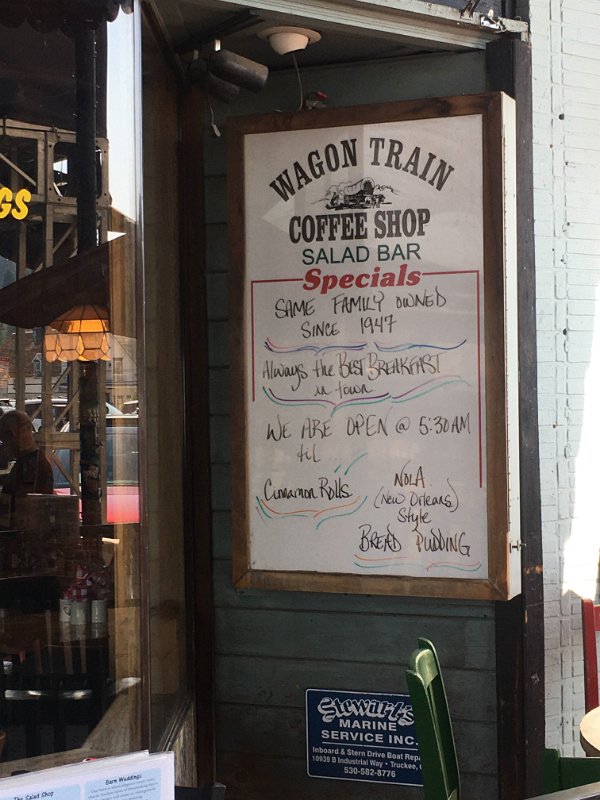 GS
WAGON TRAIN
COFFEE SHOP
SALAD BAR
Specials
SAME FAMILY OWNED
SINCE 1947
Always the BEST BREAKFAST
in town
WE ARE OPEN @ 5:30AM
til ...
Cinnamon Rolls
NOLA
(New Orleans)
Style
BREAD PUDDING
Stewart's
MARINE
SERVICE INC.
Inboard & Stern Drive Boat Repa
10939 B Industrial Way • Truckee,
530-582-8776
The Salad Shop
Barn Weddings